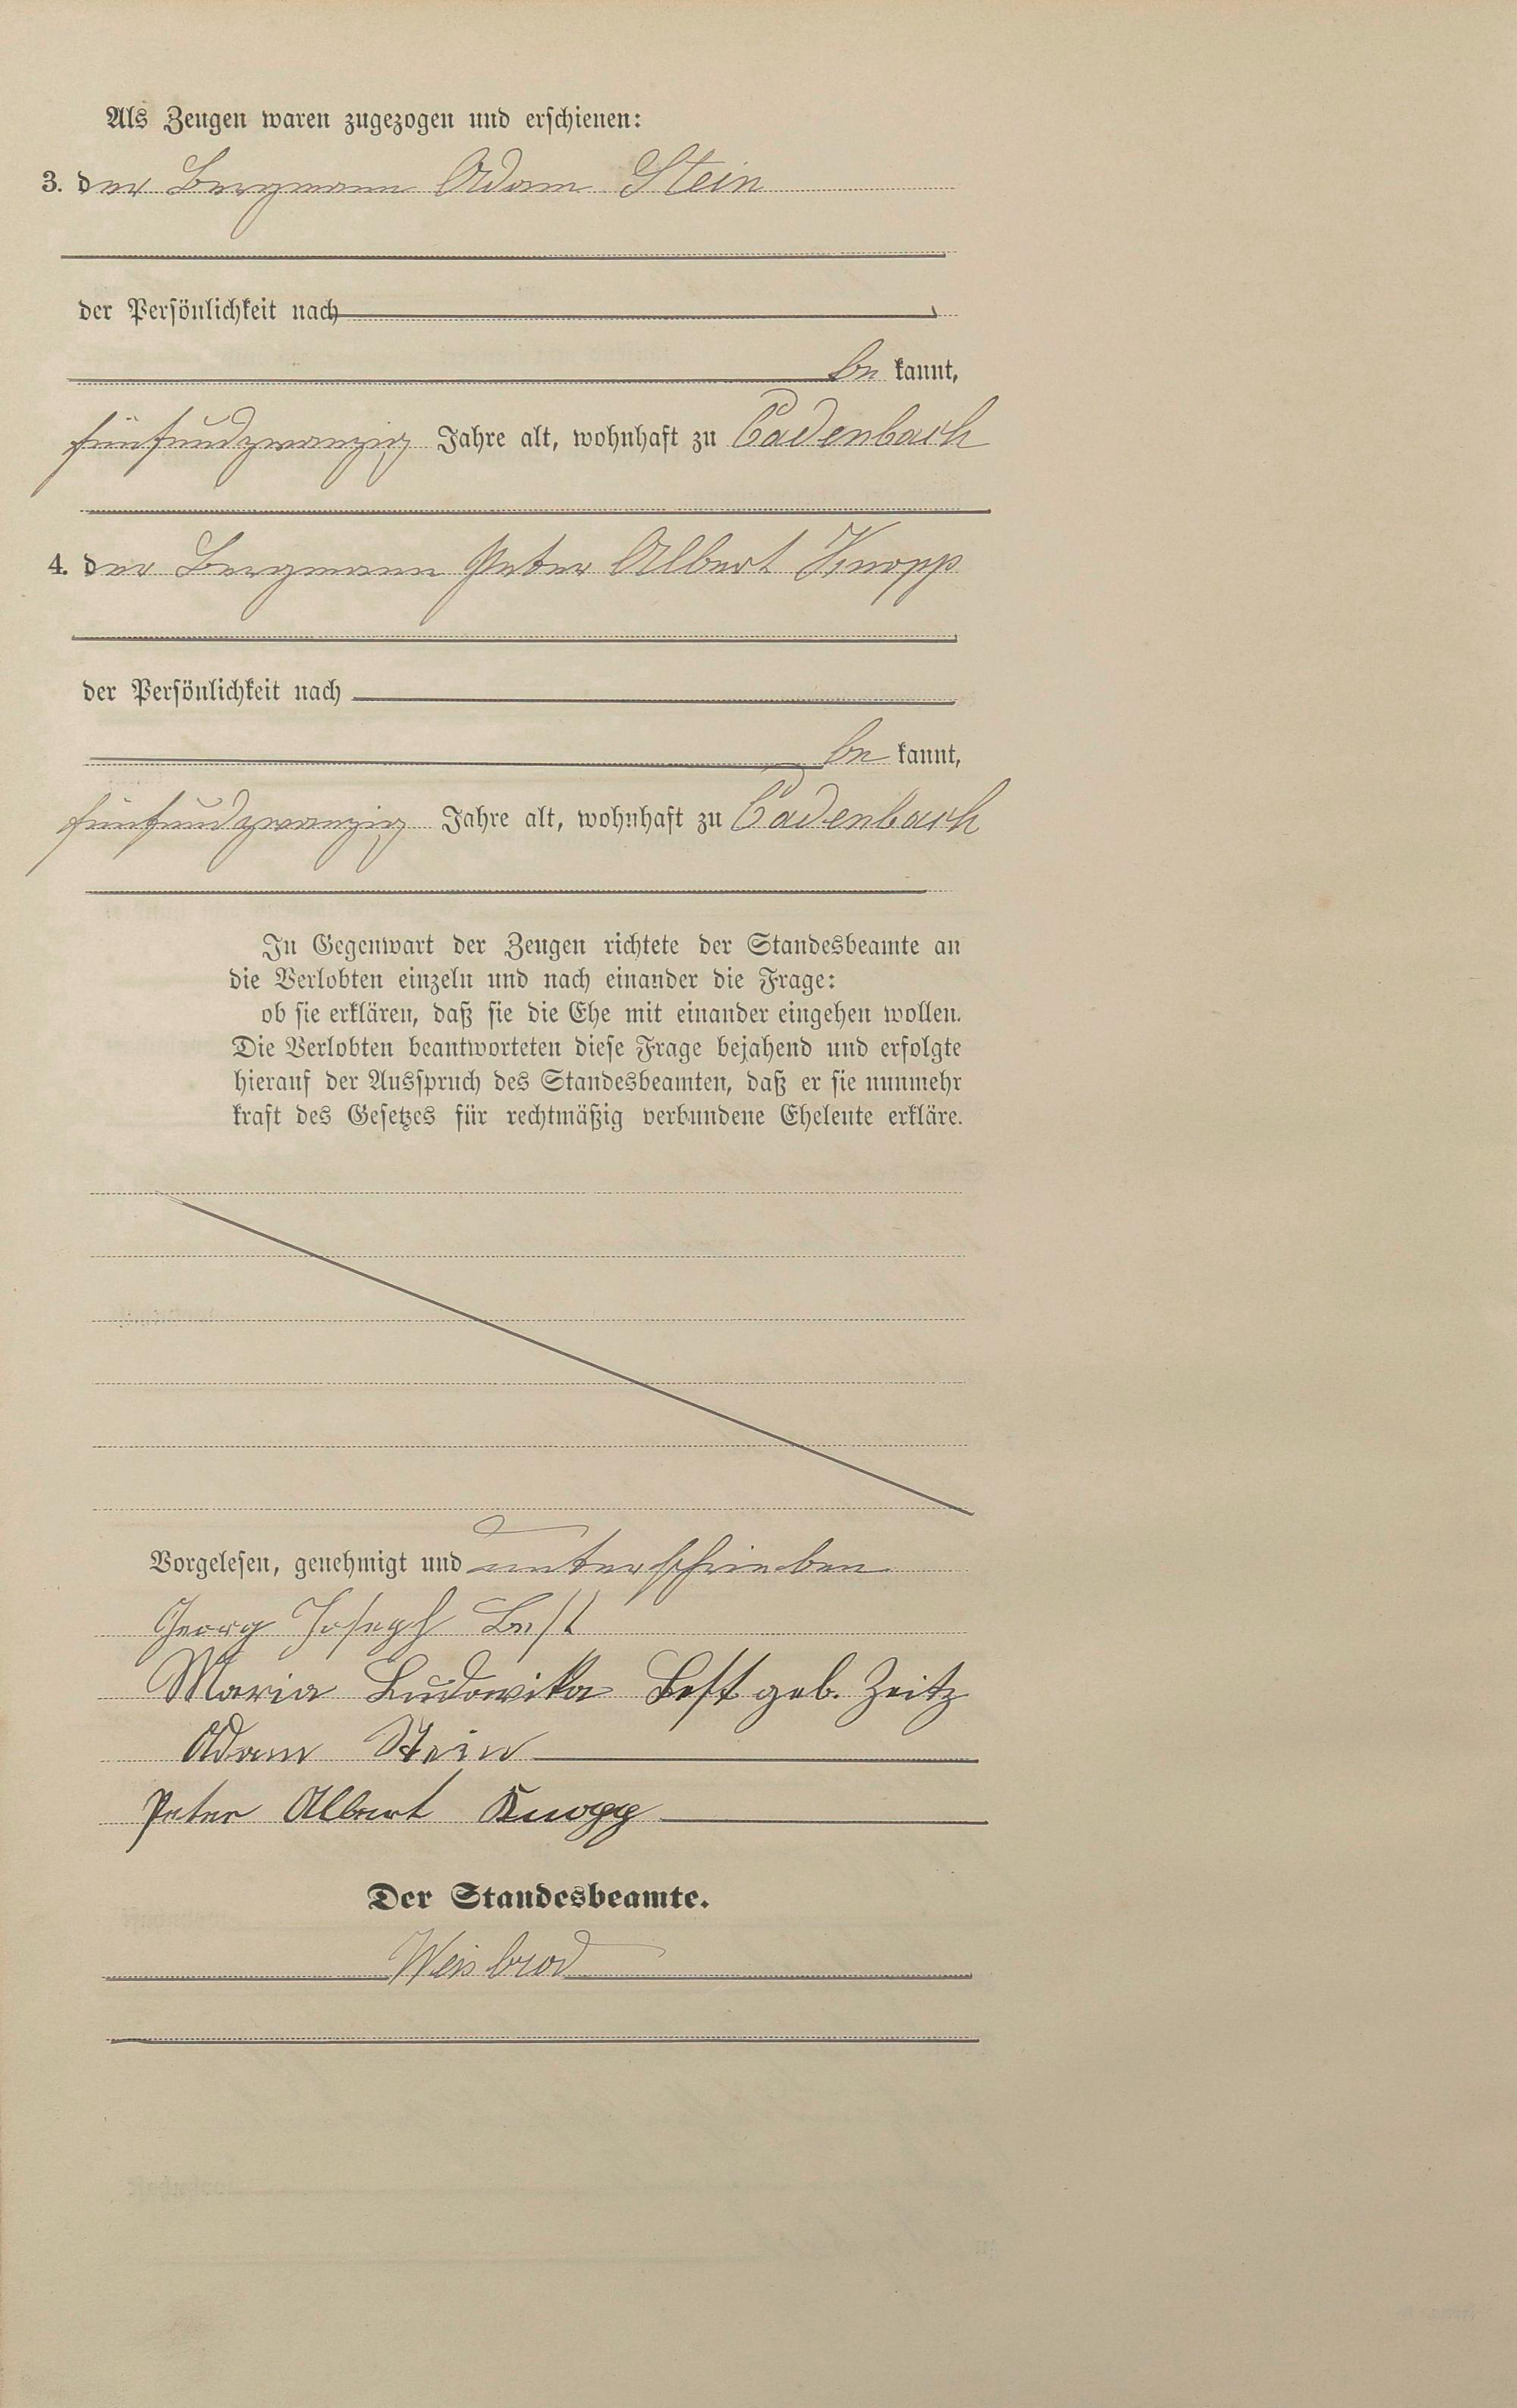 Als Zeugen waren zugezogen und erschienen:
3. der Bergmann Adam Stein
der Persönlichkeit nach
be kannt,
fünfundzwanzig Jahre alt, wohnhaft zu Cadenbach
4. der Bergmann Peter Albert Knopp
der Persönlichkeit nach
be kannt,
fünfundzwanzig Jahre alt, wohnhaft zu Cadenbach
In Gegenwart der Zeugen richtete der Standesbeamte an
die Verlobten einzeln und nach einander die Frage:
ob sie erklären, daß sie die Ehe mit einander eingehen wollen.
Die Verlobten beantworteten diese Frage bejahend und erfolgte
hierauf der Ausspruch des Standesbeamten, daß er sie nunmehr
kraft des Gesetzes für rechtmäßig verbundene Eheleute erkläre.
Vorgelesen, genehmigt und unterschrieben
Georg Joseph Best
Maria Ludowika Best geb. Zeitz
Adam Stein
Peter Albert Knopp
Der Standesbeamte.
Weisbrod